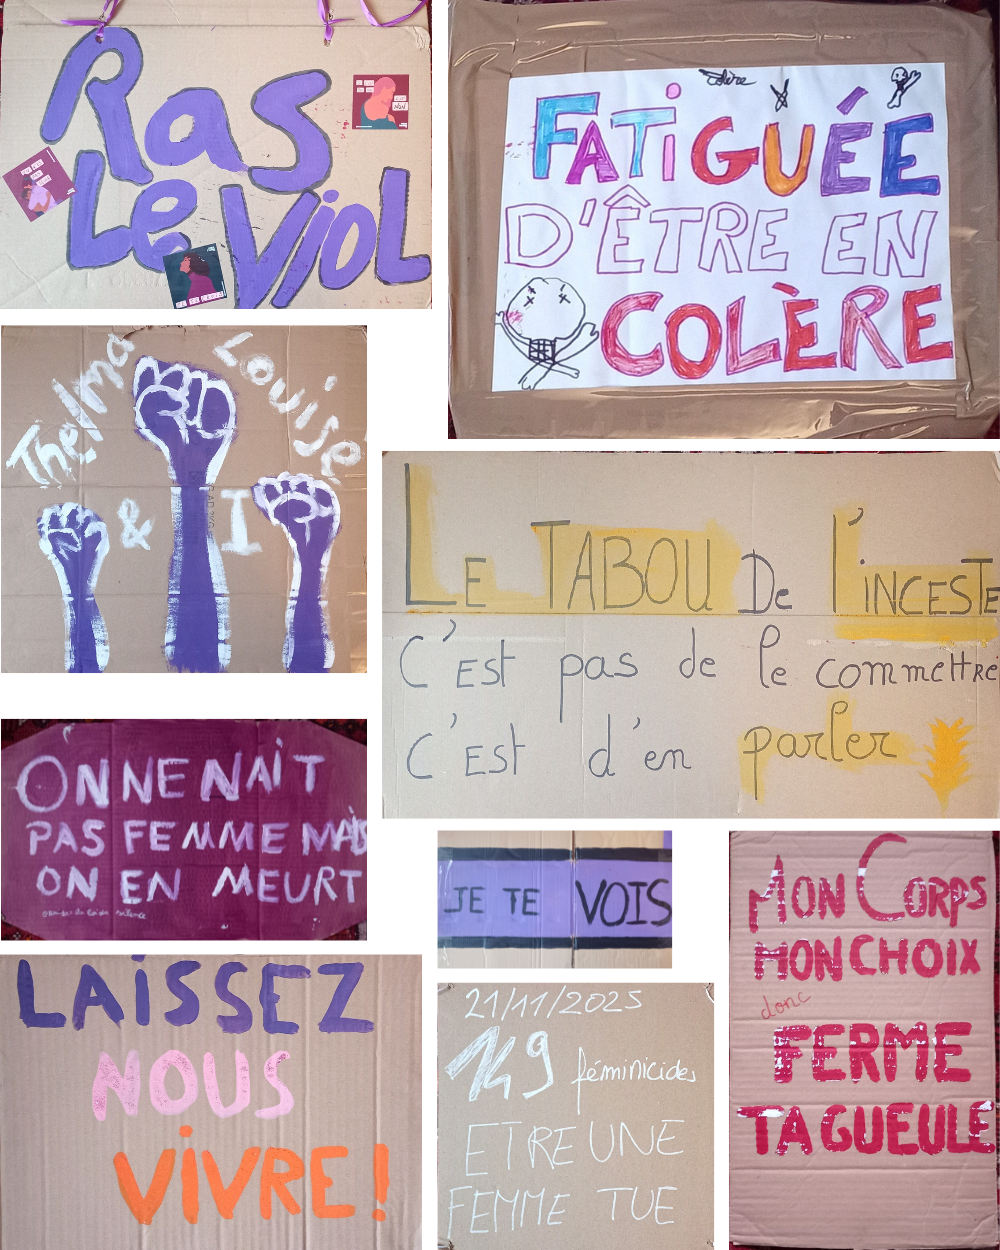 Ras
Le Viol
colère
FATiGUÉE
D'ÊTRE EN
COLÈRE
Thelma Louise
& I
LE TABOU De L'INCESTE
C'Est pas de le commettre
C'Est d'en parler
ON NE NAiT
PAS FEMME MAiS
ON EN MEURT
JE TE VOIS
MON CORPS
MON CHOIX
donc
FERME
TA GUEULE
LAiSSEZ
NOUS
ViVRE!
21/11/2025
149 féminicides
ETRE UNE
FEMME TUE